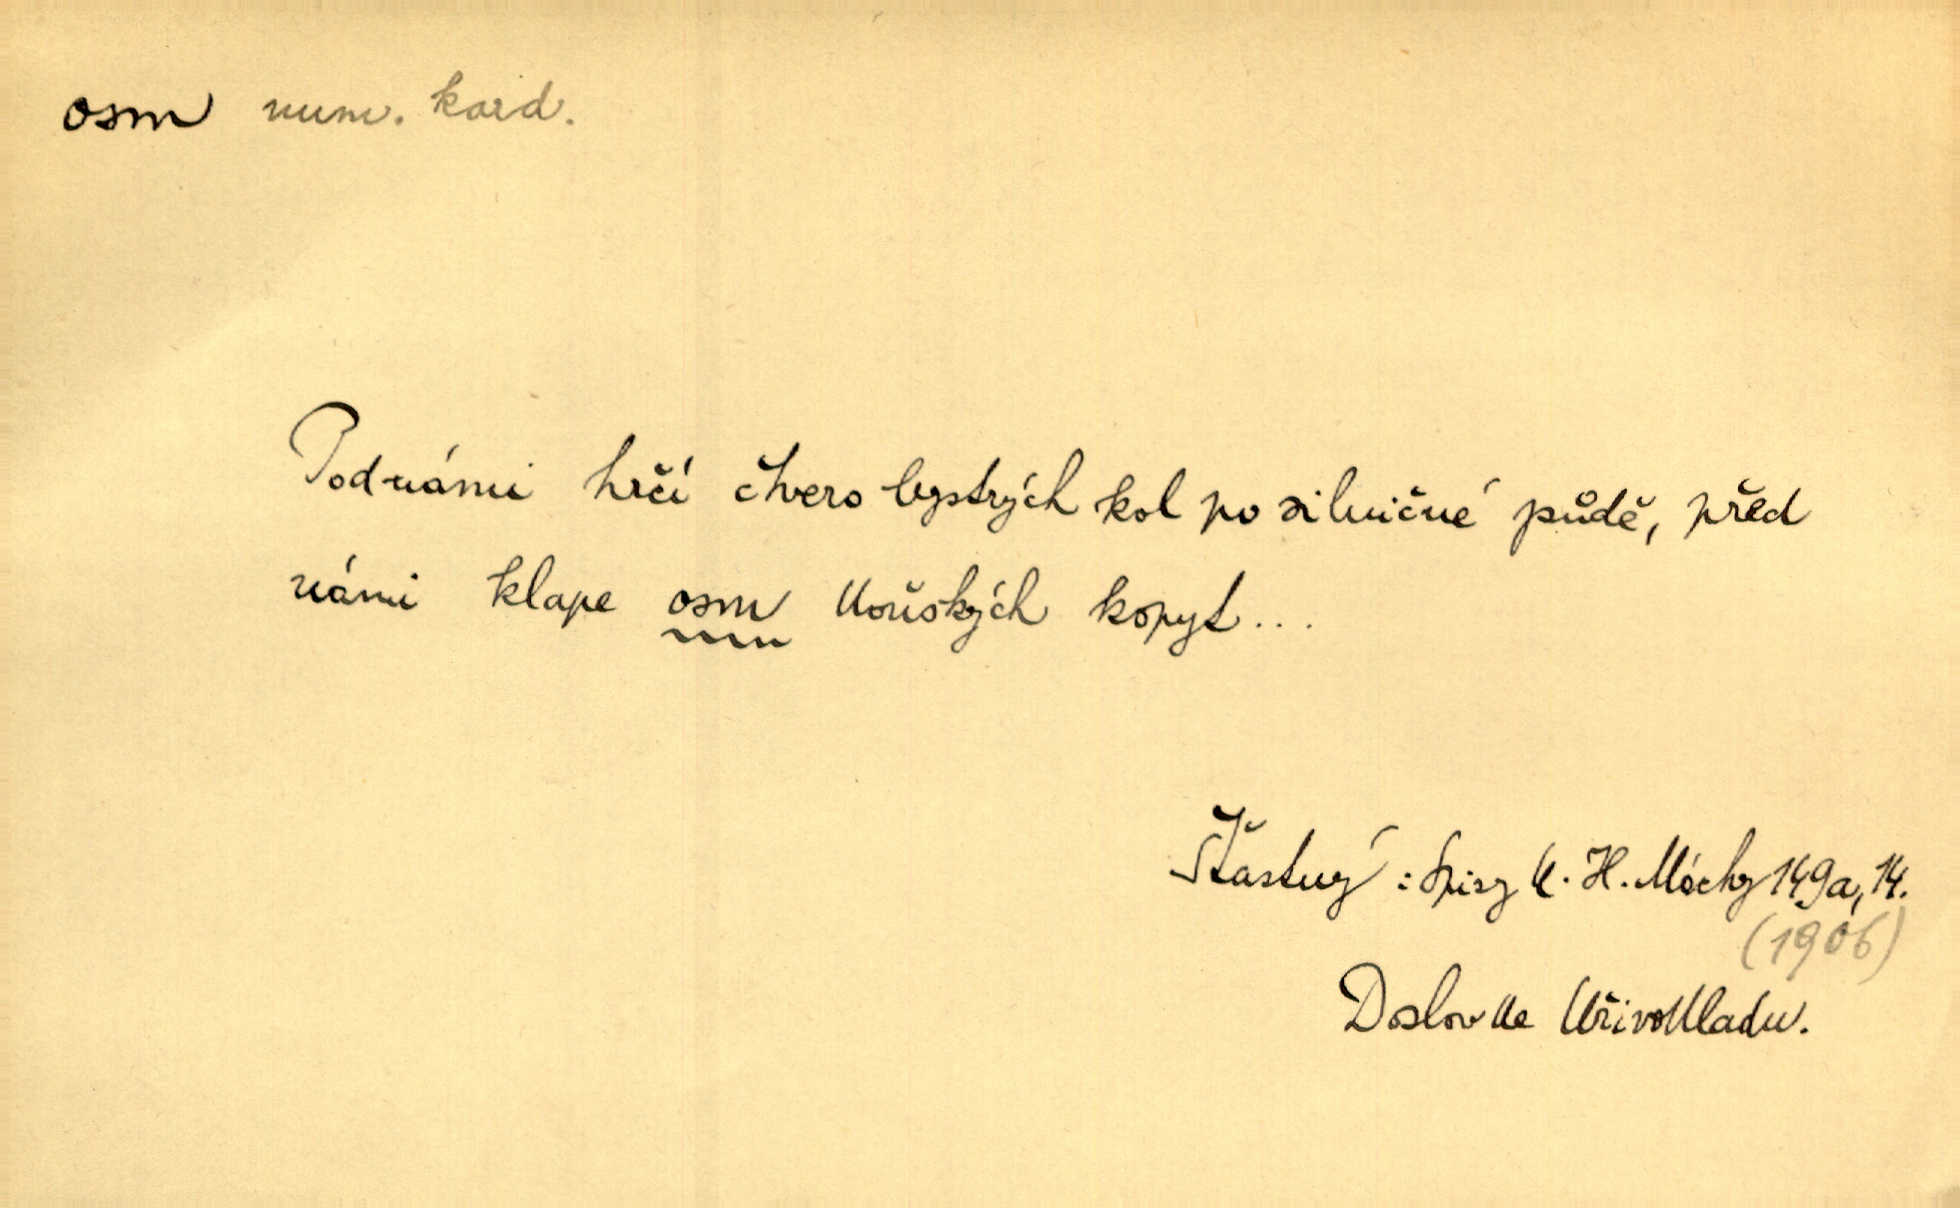 osm num. kard.
Pod námi hrčí čtvero bystrých kol po silničné půdě, před
námi klape osm koňských kopyt...
Šťastný: Spisy K. H. Máchy 149a, 14.
(1906)
Doslov ke Křivokladu.